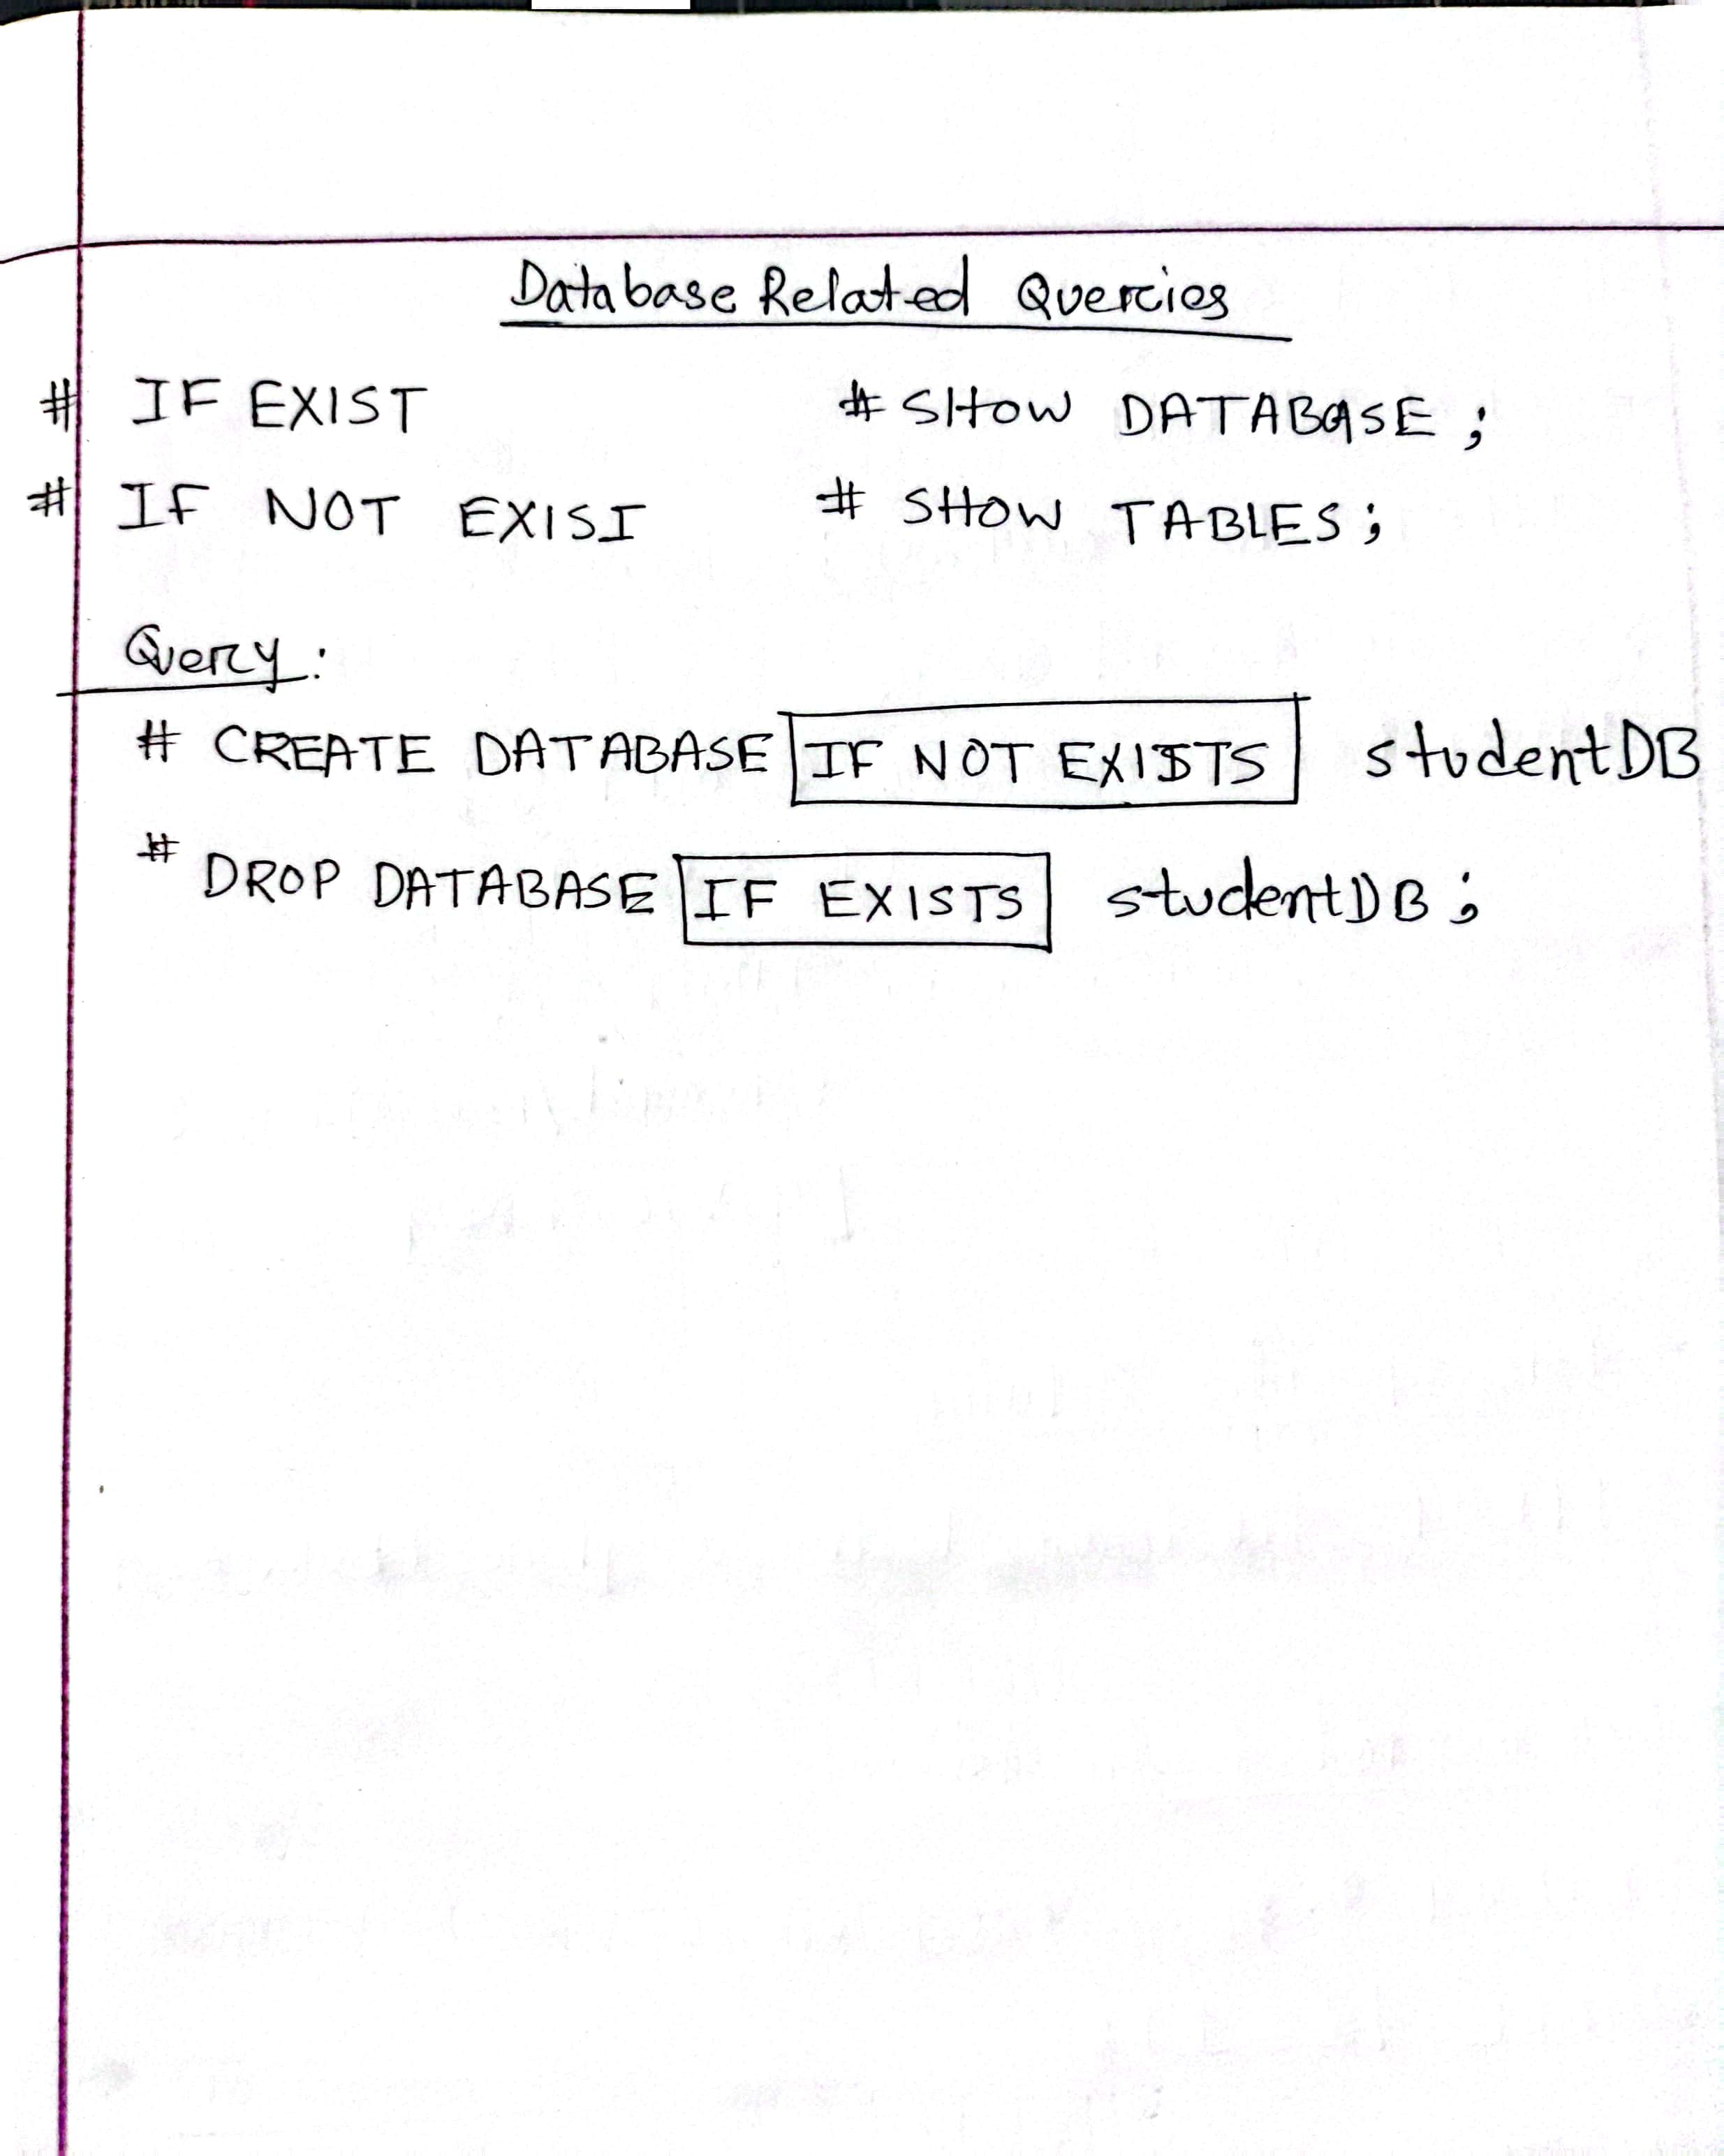 Database Related Quercies
# IF EXIST
# SHOW DATABASE;
# IF NOT EXISI
# SHOW TABLES;
Query:
# CREATE DATABASE IF NOT EXISTS studentDB
# DROP DATABASE IF EXISTS studentDB;